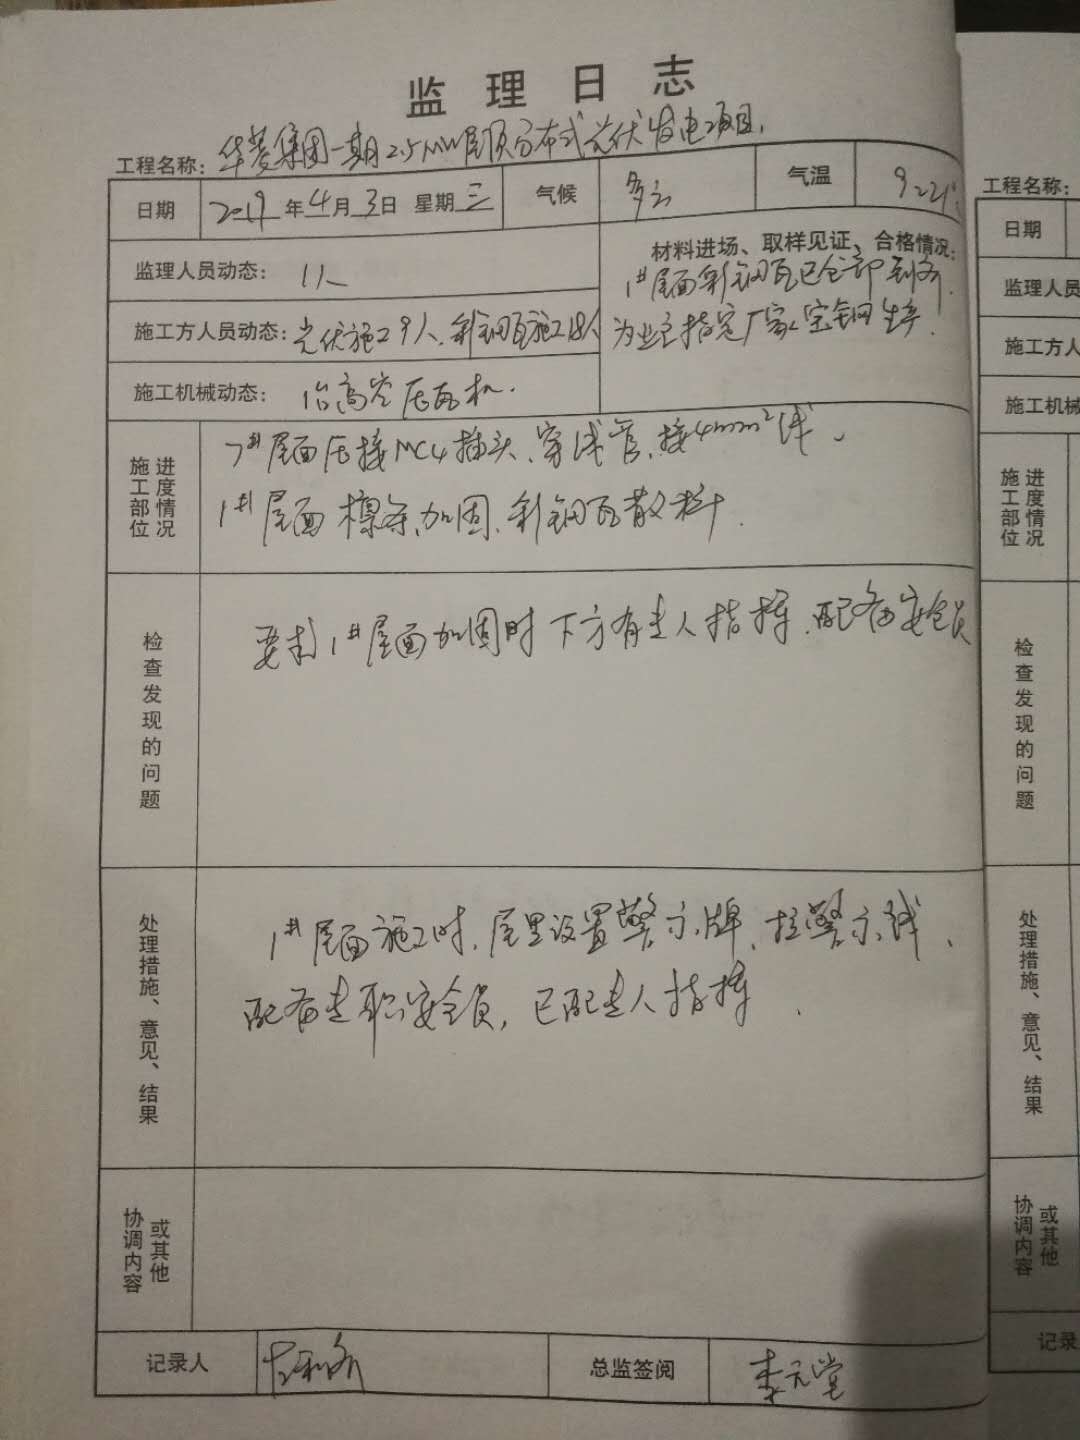 监理日志
工程名称：华菱集团一期2.5MW屋顶分布式光伏发电项目.
日期 2019年4月3日 星期三 气候 多云 气温
监理人员动态：1人
材料进场、取样见证、合格情况：
1#屋面彩钢瓦已全部到齐.
为业主指定厂家宝钢生产.
施工方人员动态：光伏施工9人.彩钢瓦施工18人
施工机械动态：1台高空压瓦机.
施工部位 进度情况
7#屋面压接MC4插头、穿线管、接4mm²线、
1#屋面檩条加固、彩钢瓦散料.
检查发现的问题
要求1#屋面加固时下方有专人指挥.配备安全员
处理措施、意见、结果
1#屋面施工时、屋里设置警示牌、拉警示线、
配备专职安全员，已配专人指挥.
协调内容 或其他
记录人
总监签阅 李元堂
工程名称：
日期
监理人员
施工方人
施工机械
施工部位 进度情况
检查发现的问题
处理措施、意见、结果
协调内容 或其他
记录